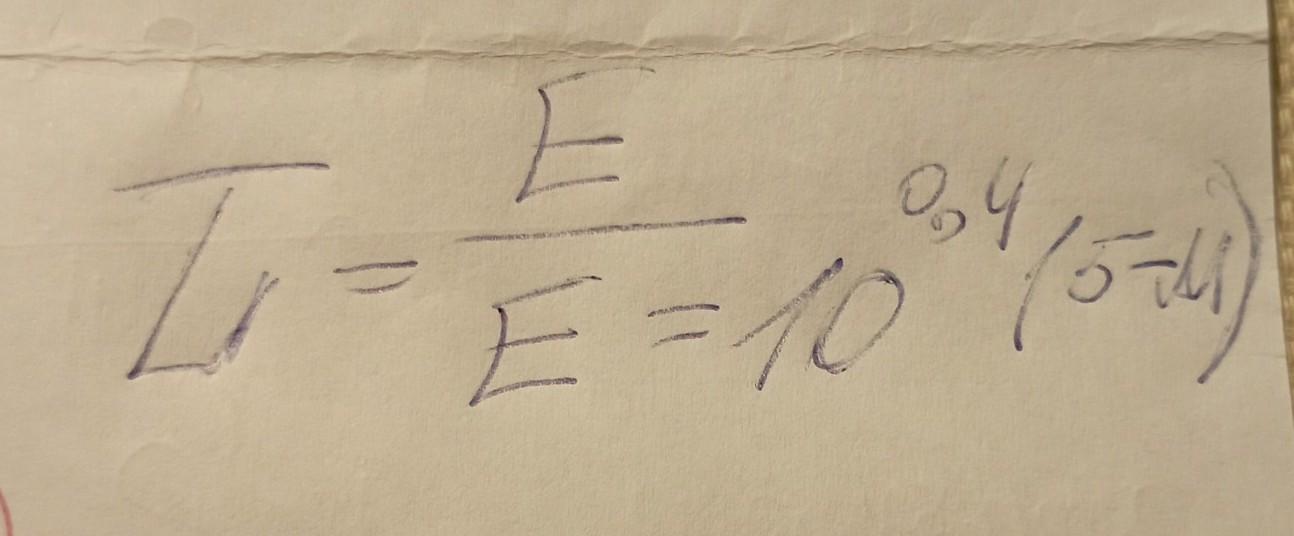 L = E/E = 10^0,4(5-M)